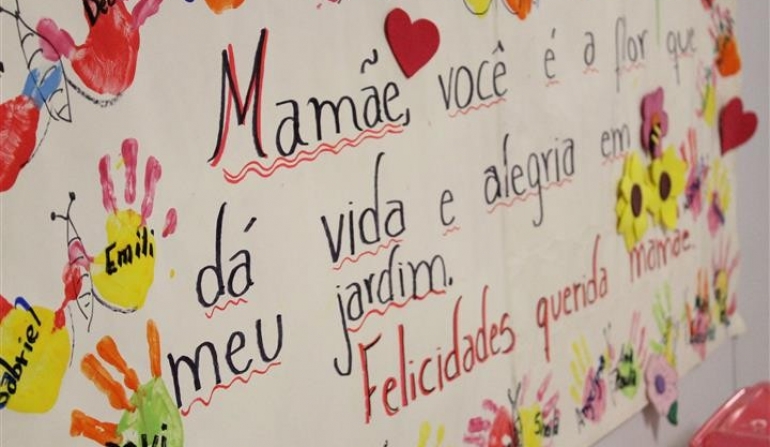 Mamãe, você é a flor que
dá vida e alegria em
meu jardim.
Felicidades querida mamãe.
Emili
Gabriel